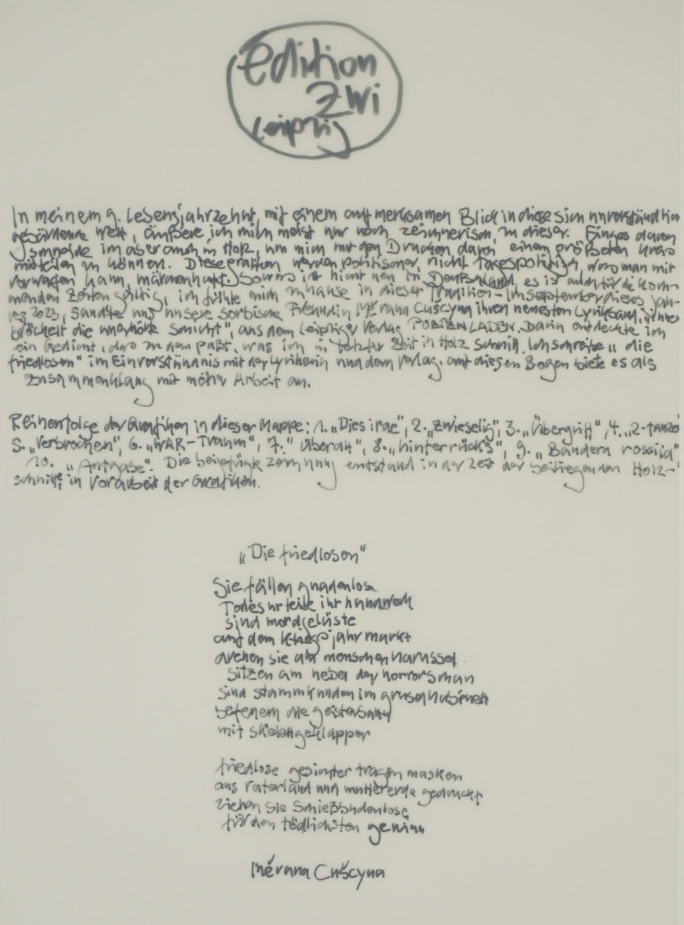 edition
Zwi
Leipzig
In meinem 9. Lebensjahrzehnt, mit einem aufmerksamen Blick in diese sich unverständlich
gebärdende Welt, äußere ich mich meist nur noch zeichnerisch zu dieser. Einiges davon
schneide ich aber auch in Holz, um mich mit den Drucken davon einem größeren Kreis
mitteilen zu können. Diese Grafiken werden politischer, nicht tagespolitisch, wo man mit
kann, so ist hier in Deutschland es ist auch für die kom-
menden Zeiten gültig, ich fühle mich zuhause in dieser Tradition - Im September dieses Jah-
res 2023, sandte uns unsere sorbische Freundin Měrana Cušcyna ihren neuesten Lyrikband, "unter
bröckelt die schicht", aus dem Leipziger Verlag POETENLADEN. Darin entdeckte ich
ein Gedicht, das zu dem paßt, was ich in letzter Zeit in Holz schnitt. Ich schreibe „die
friedlosen" im Einverständnis mit der Lyrikerin und dem Verlag auf diesen Bogen biete es als
Zusammenklang mit meiner Arbeit an.
Reihenfolge der Grafiken in dieser Mappe: 1. "Dies irae", 2. "zwieselig", 3. "Übergriff", 4.
5. "Verbrochen", 6. "WAR-Traum", 7. "überall", 8. "hinterrücks", 9. "Bandera rossa"
10. Die beigefügte Zeichnung entstand in der Zeit der beiliegenden Holz-
schnitte in Vorarbeit der Grafiken.
"Die friedlosen"
Sie fällen gnadenlose
Todesurteile ihr handwerk
sind mordgelüste
auf dem Kriegsjahrmarkt
drehen sie am menschenkarussel
sitzen am hebel der horrorshow
sind stammkunden im gruselkabinett
befeuern die geisterbahn
mit skelettgeklapper
friedlose gesichter tragen masken
aus vaterland und muttererde gedruckt
ziehen sie schießbudenlose
für den tödlichsten gewinn
Měrana Cušcyna